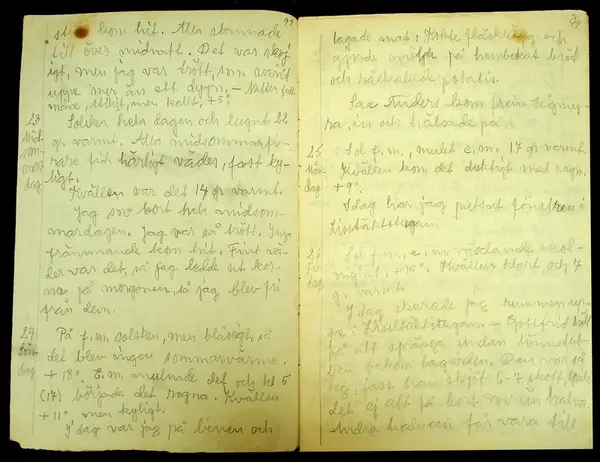 kom hit. Alla stannade
till över midnatt. Det var skoj
igt, men jag var trött, som varit
uppe mer än ett dygn, – Natten full
måne, stilla, men kallt, +5°.
23
Mid
som
mars
dag
Solsken hela dagen och lugnt. 22
gr varmt. Alla midsommarfi-
rare fick härligt väder, fast ky-
ligt.
Kvällen var det 14 gr varmt.
Jag sov bort hela midsom-
mardagen. Jag var så trött. Inga
främmande kom hit. Fint vä-
der var det, så jag ledde ut kor-
na på morgonen, så jag blev fri
från dem.
24
Sön
dag
På f.m. solsken, men blåsigt så
det blev ingen sommarvärme.
+18°. E.m. mulnade det och kl 5
(17) började det regna. Kvällen
+11° men kyligt.
I dag var jag på benen och
lagade mat: Stekte fläsk och
gjorde på hembakat bröd
och nykokade potatis.
Lax Anders kom från Lågmy-
ra, in och hälsade på.
25
Mån
dag
Sol f.m., mulet e.m. 17 gr varmt.
Kvällen kom det duktigt med regn.
+9°.
I dag har jag putsat fönstren i
26
Sol f.m., e.m. växlande mol-
nighet, +15°. Kvällen klart och 7
gr varmt.
I dag skurade jag rummen up-
pe i – Gottfrid höll
på att spränga undan
ben bakom bagboden. Den var så
seg, fast han skjöt 6-7 skott, gick
det ej att få bort mer än halva.
Andra halvan får vara till